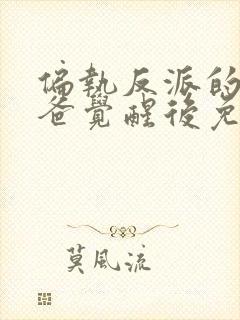 偏執反派的
爸覺醒後免
莫風流